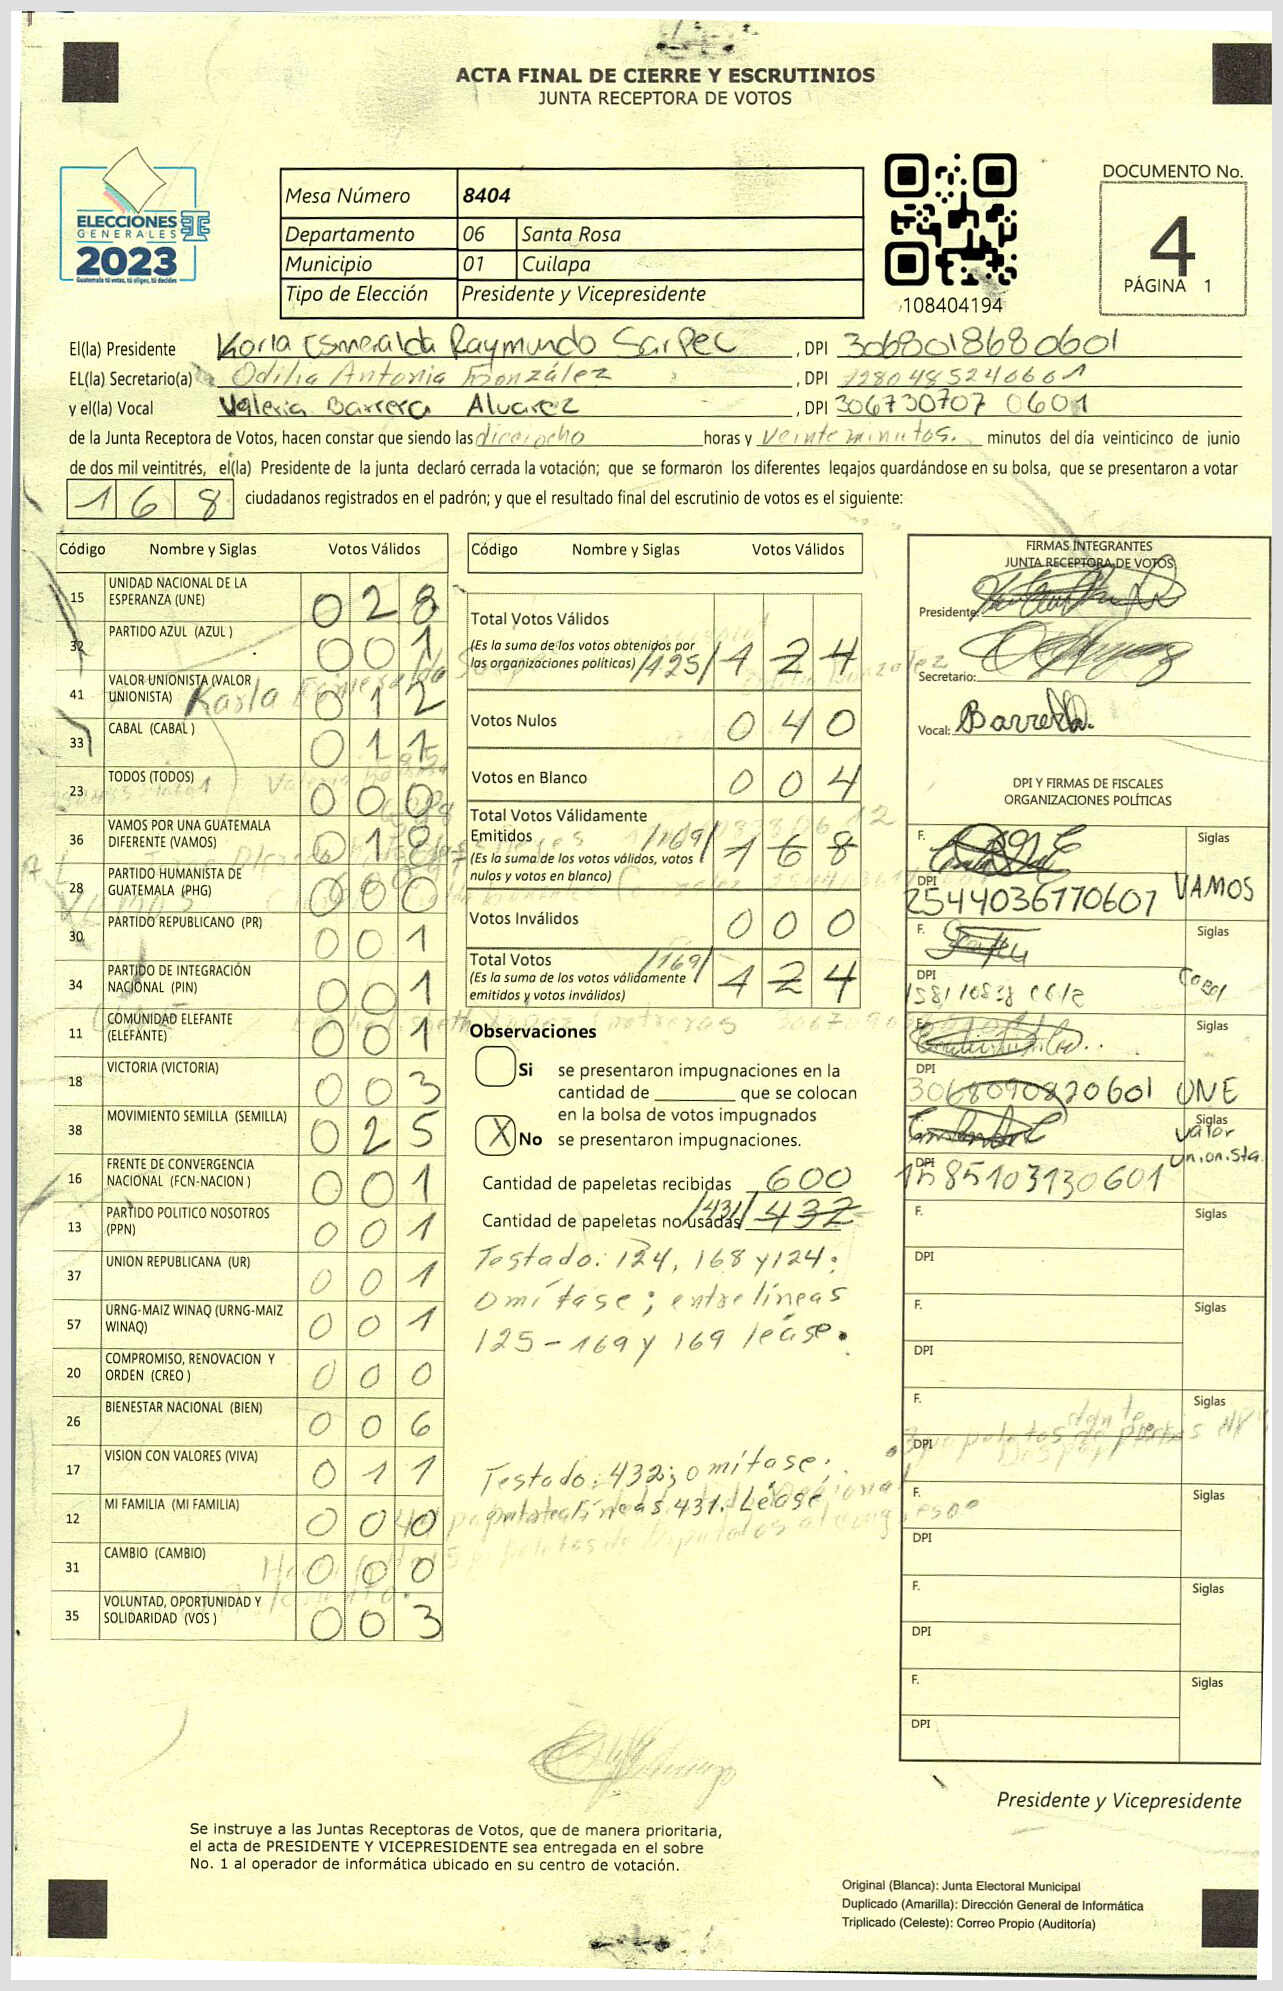 ACTA FINAL DE CIERRE Y ESCRUTINIOS
JUNTA RECEPTORA DE VOTOS
ELECCIONES
GENERALES
2023
Guatemala tú votas, tú eliges, tú decides
Mesa Número 8404
Departamento 06 Santa Rosa
Municipio 01 Cuilapa
Tipo de Elección Presidente y Vicepresidente
108404194
DOCUMENTO No.
4
PÁGINA 1
El(la) Presidente Karla Esmeralda Raymundo Sarpec, DPI 3068018680601
EL(la) Secretario(a) Odilia Antonia González, DPI
y el(la) Vocal Valeria Barrera Alvarez, DPI 306730707 0601
de la Junta Receptora de Votos, hacen constar que siendo las dieciocho horas y veinte minutos. minutos del día veinticinco de junio
de dos mil veintitrés, el(la) Presidente de la junta declaró cerrada la votación; que se formaron los diferentes legajos guardándose en su bolsa, que se presentaron a votar
168 ciudadanos registrados en el padrón; y que el resultado final del escrutinio de votos es el siguiente:
Código Nombre y Siglas Votos Válidos
15 UNIDAD NACIONAL DE LA ESPERANZA (UNE) 028
32 PARTIDO AZUL (AZUL ) 001
41 VALOR UNIONISTA (VALOR UNIONISTA) 012
33 CABAL (CABAL ) 011
23 TODOS (TODOS) 000
36 VAMOS POR UNA GUATEMALA DIFERENTE (VAMOS) 018
28 PARTIDO HUMANISTA DE GUATEMALA (PHG) 000
30 PARTIDO REPUBLICANO (PR) 001
34 PARTIDO DE INTEGRACIÓN NACIONAL (PIN) 001
11 COMUNIDAD ELEFANTE (ELEFANTE) 001
18 VICTORIA (VICTORIA) 003
38 MOVIMIENTO SEMILLA (SEMILLA) 025
16 FRENTE DE CONVERGENCIA NACIONAL (FCN-NACION ) 001
13 PARTIDO POLITICO NOSOTROS (PPN) 001
37 UNION REPUBLICANA (UR) 001
57 URNG-MAIZ WINAQ (URNG-MAIZ WINAQ) 001
20 COMPROMISO, RENOVACION Y ORDEN (CREO ) 000
26 BIENESTAR NACIONAL (BIEN) 006
17 VISION CON VALORES (VIVA) 011
12 MI FAMILIA (MI FAMILIA) 000
31 CAMBIO (CAMBIO) 000
35 VOLUNTAD, OPORTUNIDAD Y SOLIDARIDAD (VOS ) 003
Código Nombre y Siglas Votos Válidos
Total Votos Válidos
(Es la suma de los votos obtenidos por
las organizaciones políticas) /125/ 124
Votos Nulos 040
Votos en Blanco 004
Total Votos Válidamente
Emitidos /169/ 168
(Es la suma de los votos válidos, votos
nulos y votos en blanco)
Votos Inválidos 000
Total Votos /169/ 124
(Es la suma de los votos válidamente
emitidos y votos inválidos)
Observaciones
Si se presentaron impugnaciones en la
cantidad de ________ que se colocan
en la bolsa de votos impugnados
X No se presentaron impugnaciones.
Cantidad de papeletas recibidas 600
Cantidad de papeletas no usadas /431/ 432
Testado: 124, 168 y 124:
omítase; entre líneas
125-169 y 169 léase.
Testado: 432; omítase.
entre líneas 431. Léase
FIRMAS INTEGRANTES
JUNTA RECEPTORA DE VOTOS
Presidente:
Secretario:
Vocal: Barrera.
DPI Y FIRMAS DE FISCALES
ORGANIZACIONES POLÍTICAS
F. Siglas
DPI 2544036770607 VAMOS
F. Siglas
DPI Cabal
F. Siglas
DPI 3068090820601 UNE
Siglas
DPI 1585103130601 Valor Unionista
F. Siglas
DPI
F. Siglas
DPI
F. Siglas
DPI
F. Siglas
DPI
F. Siglas
DPI
F. Siglas
DPI
Presidente y Vicepresidente
Se instruye a las Juntas Receptoras de Votos, que de manera prioritaria,
el acta de PRESIDENTE Y VICEPRESIDENTE sea entregada en el sobre
No. 1 al operador de informática ubicado en su centro de votación.
Original (Blanca): Junta Electoral Municipal
Duplicado (Amarilla): Dirección General de Informática
Triplicado (Celeste): Correo Propio (Auditoría)